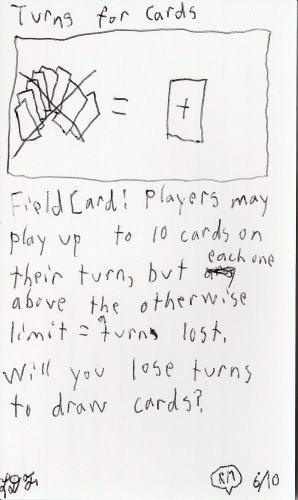 Turns for Cards
= +
Field Card! Players may
play up to 10 cards on
their turn, but each one
above the otherwise
limit = 1 turn lost.
Will you lose turns
to draw cards?
RM 6/10